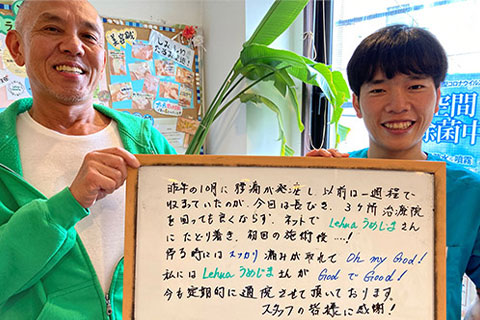 美容鍼
しみ・しわ
たるみに
コロナウイル
空間
除菌中
昨年の10月に腰痛が発症し、以前は一週程で
収まっていたのが、今回は長びき、3ヶ所治療院
を回っても良くならず、ネットで Lehua うめじまさん
にたどり着き、初回の施術後‥‥!
帰る時にはスッカリ痛みが取れて Oh my God!
私には Lehua うめじまさんが God で Good!
今も定期的に通院させて頂いております。
スタッフの皆様に感謝!